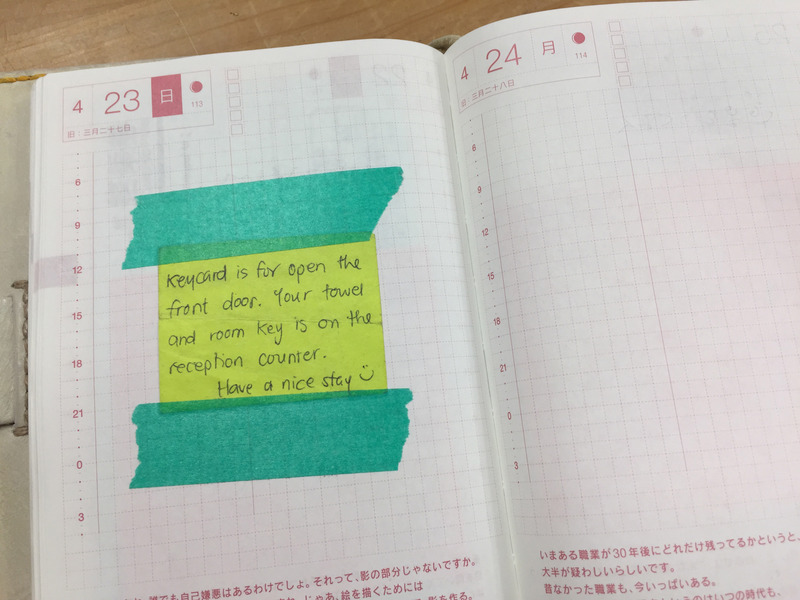 4 23 日
113
旧：三月二十七日
6
9
12
15
18
21
0
3
Keycard is for open the
front door. Your towel
and room key is on the
reception counter.
Have a nice stay
誰でも自己嫌悪はあるわけでしょ。それって、影の部分じゃないですか。
じゃあ、絵を描くためには
影を作る。
4 24 月
114
旧：三月二十八日
6
9
12
15
18
21
0
3
いまある職業が30年後にどれだけ残ってるかというと、
大半が疑わしいらしいです。
昔なかった職業も、今いっぱいある。
いうのはいつの時代も、